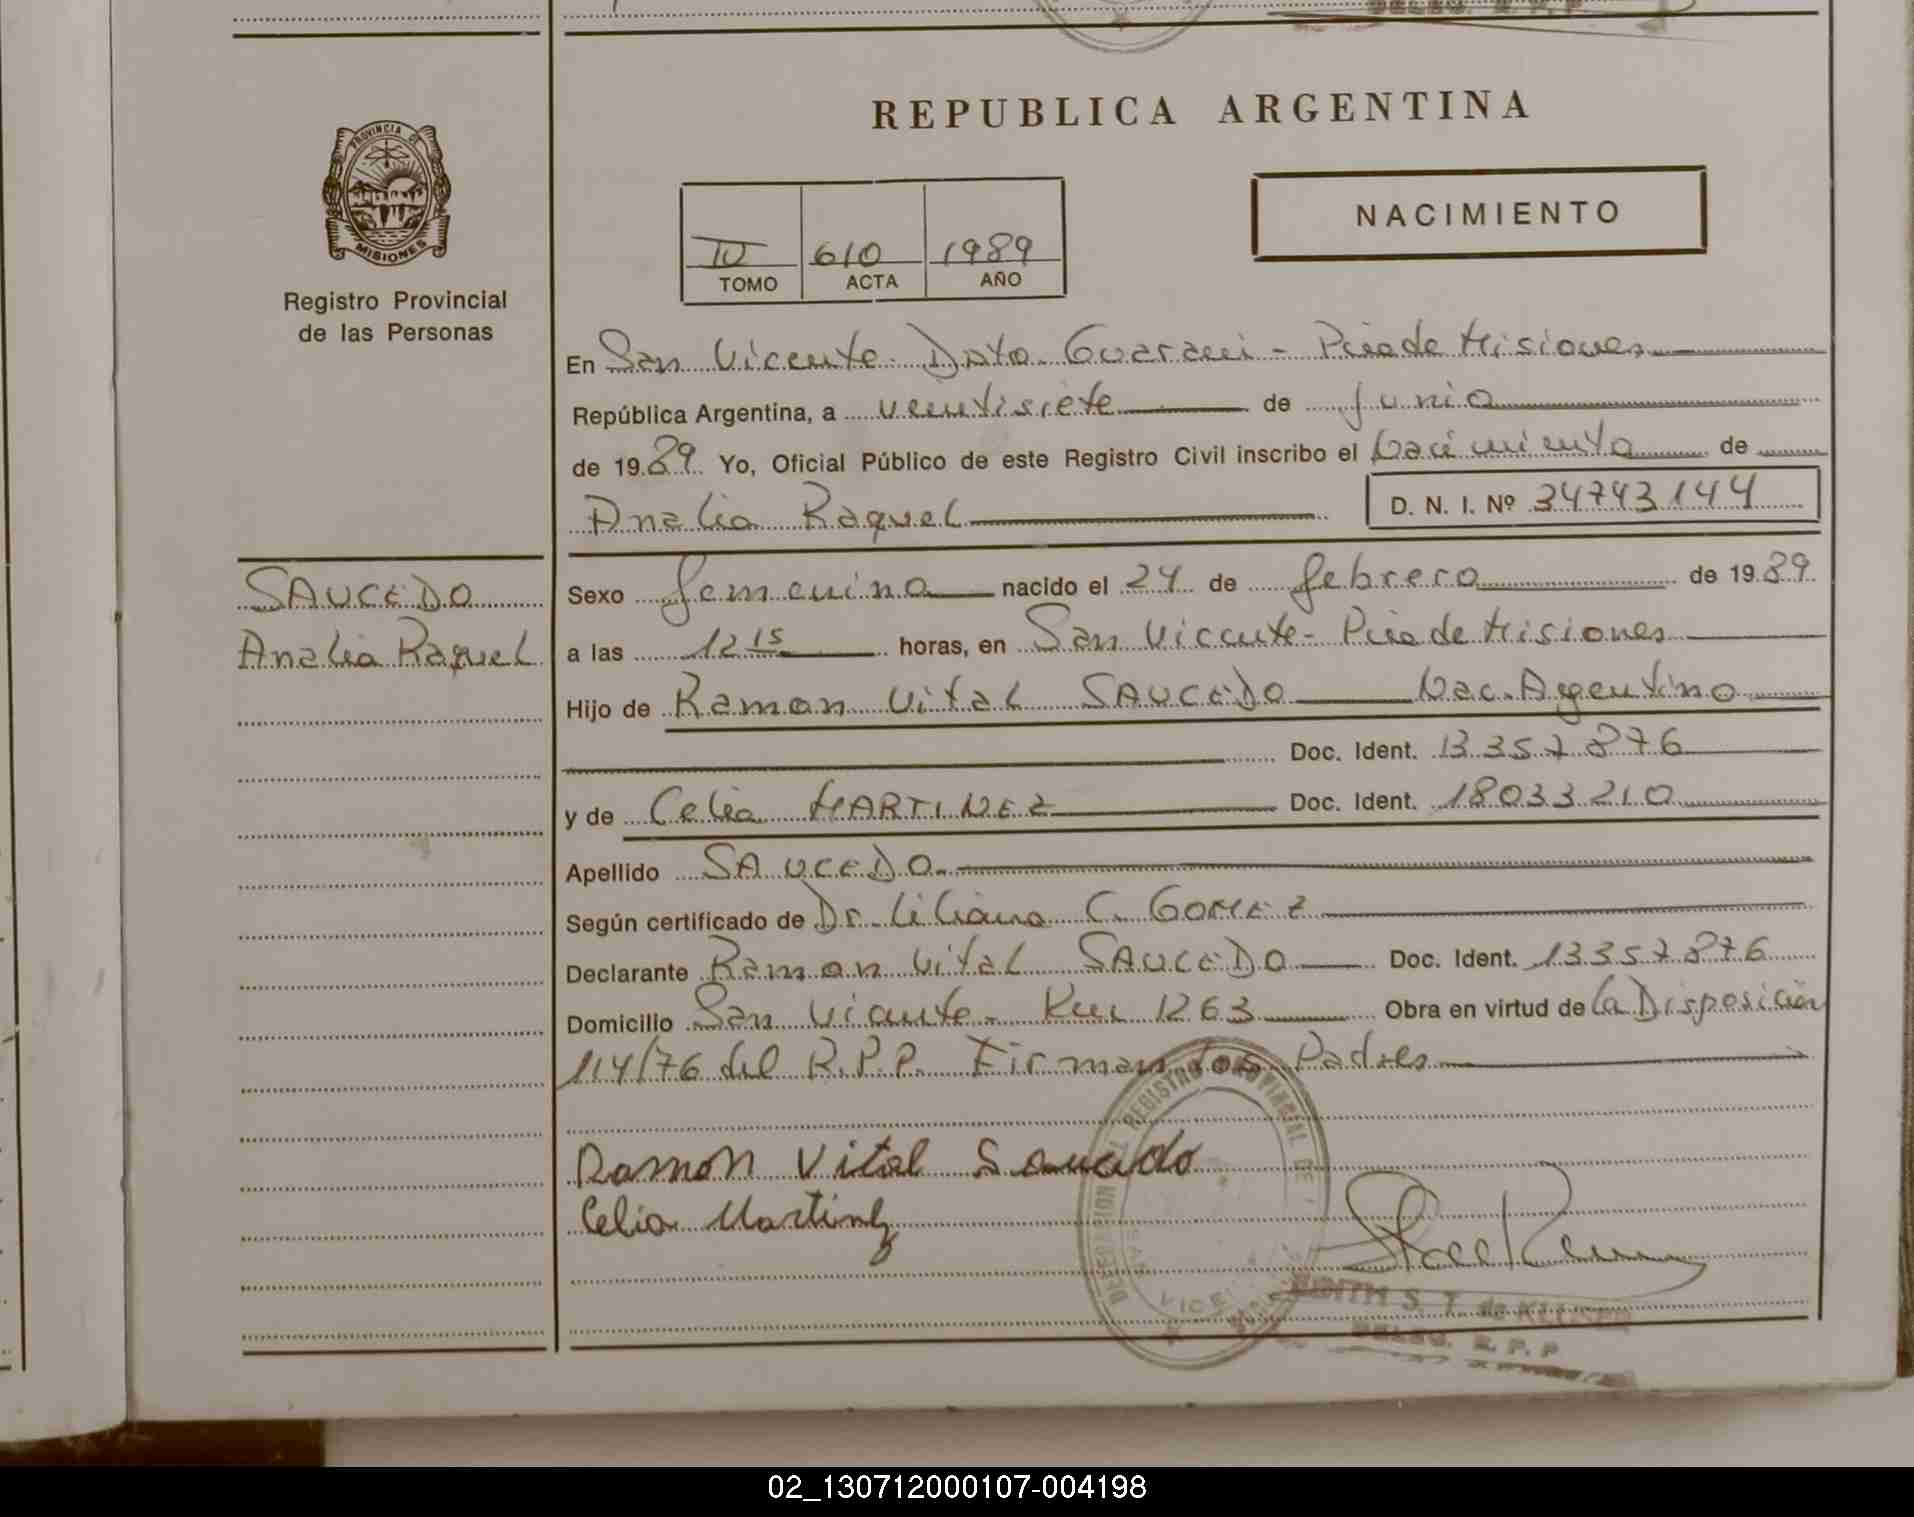 DELEG. R. P. P
PROVINCIA DE
MISIONES
Registro Provincial
de las Personas
REPUBLICA ARGENTINA
NACIMIENTO
610 1989
TOMO ACTA AÑO
En San Vicente Dpto. Guarani - Pcia de Misiones
República Argentina, a veintisiete de junio
de 1989 Yo, Oficial Público de este Registro Civil inscribo el Nacimiento de
Analia Raquel D. N. I. Nº 34743144
SAUCEDO
Analia Raquel
Sexo femenino nacido el 24 de febrero de 1989
a las 12 15 horas, en San Vicente - Pcia de Misiones
Hijo de Ramon Vital SAUCEDO Nac. Argentino
Doc. Ident. 13357876
y de Celia MARTINEZ Doc. Ident. 18033210
Apellido SAUCEDO
Según certificado de Dr. Liliana C. GOMEZ
Declarante Ramon Vital SAUCEDO Doc. Ident. 13357876
Domicilio San Vicente - Km 1263 Obra en virtud de la Disposición
114/76 del R.P.P. Firman los Padres
Ramon Vital Saucedo
Celia Martinez
DELEGACION REGISTRO PROVINCIAL DE
SAN VICENTE
EDITH S. T. de KLUSER
DELEG. R. P. P
02_130712000107-004198